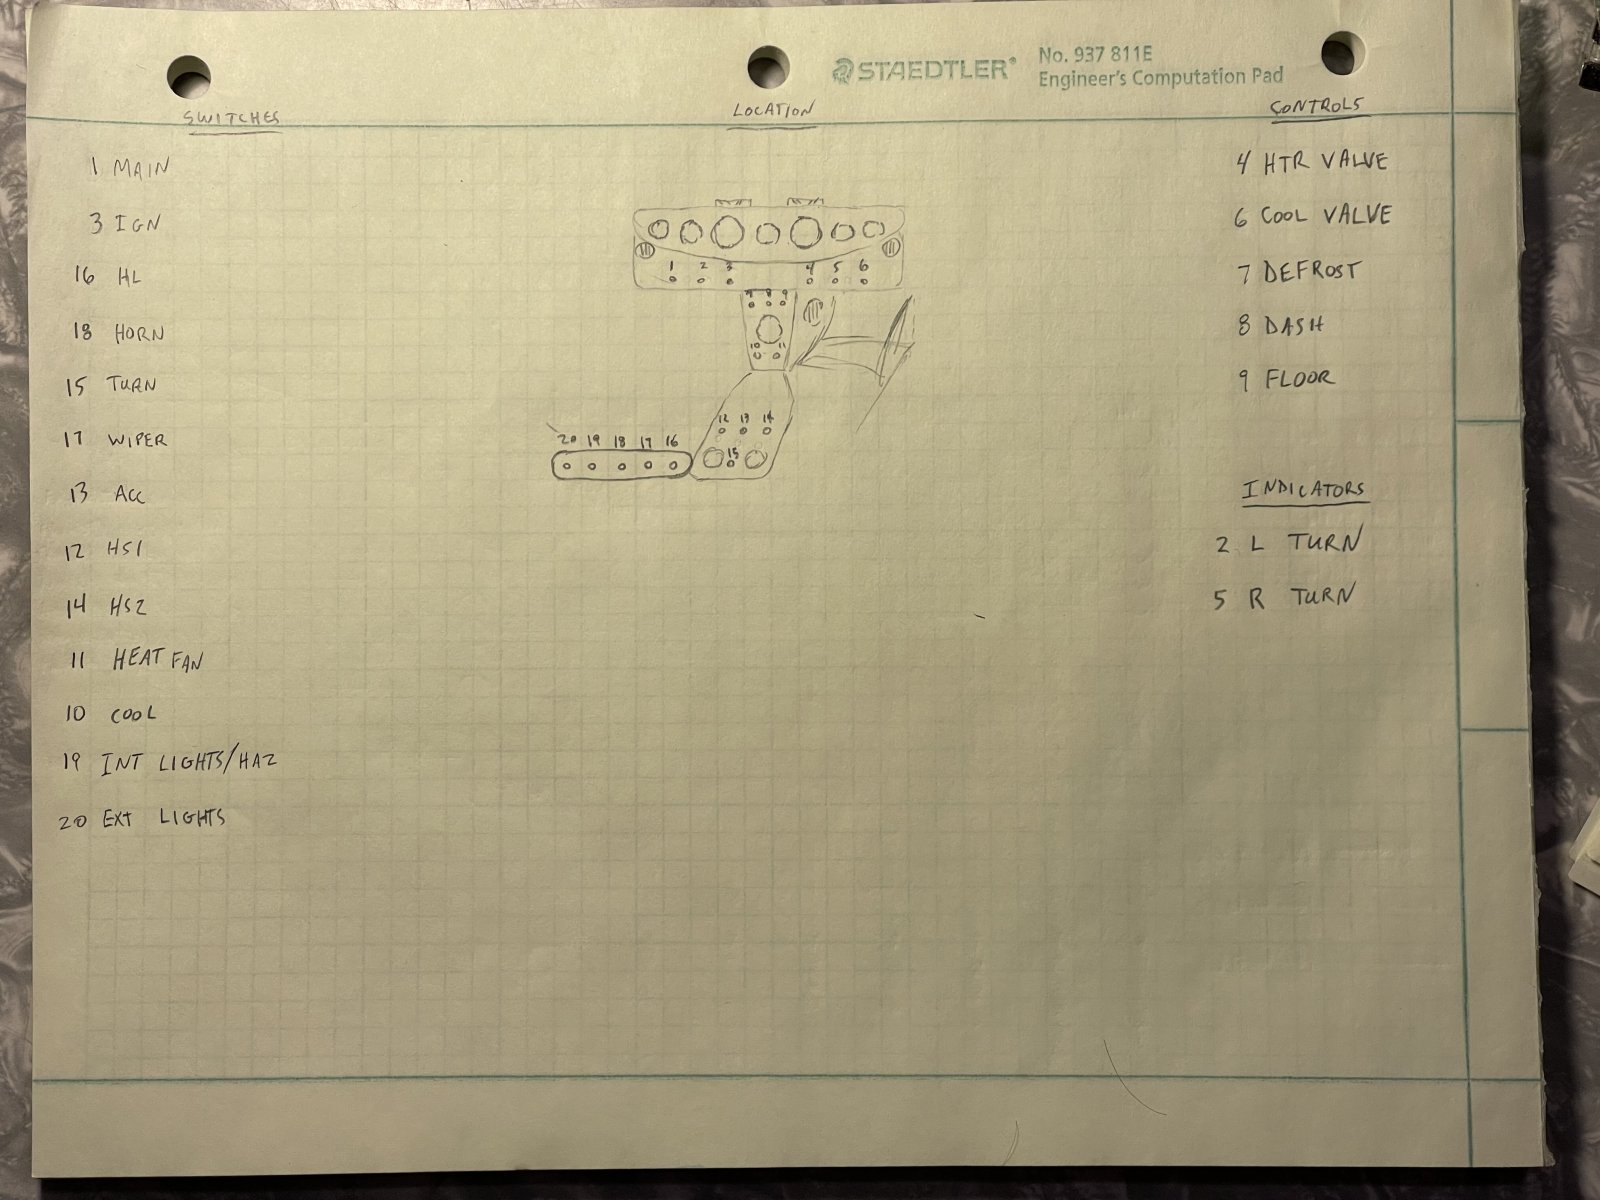 STAEDTLER®
No. 937 811E
Engineer's Computation Pad
SWITCHES
1 MAIN
3 IGN
16 HL
18 HORN
15 TURN
17 WIPER
13 ACC
12 HS1
14 HS2
11 HEAT FAN
10 COOL
19 INT LIGHTS/HAZ
20 EXT LIGHTS
LOCATION
1 2 3 4 5 6
7 8 9
10 11
12 13 14
15
20 19 18 17 16
CONTROLS
4 HTR VALVE
6 COOL VALVE
7 DEFROST
8 DASH
9 FLOOR
INDICATORS
2 L TURN
5 R TURN